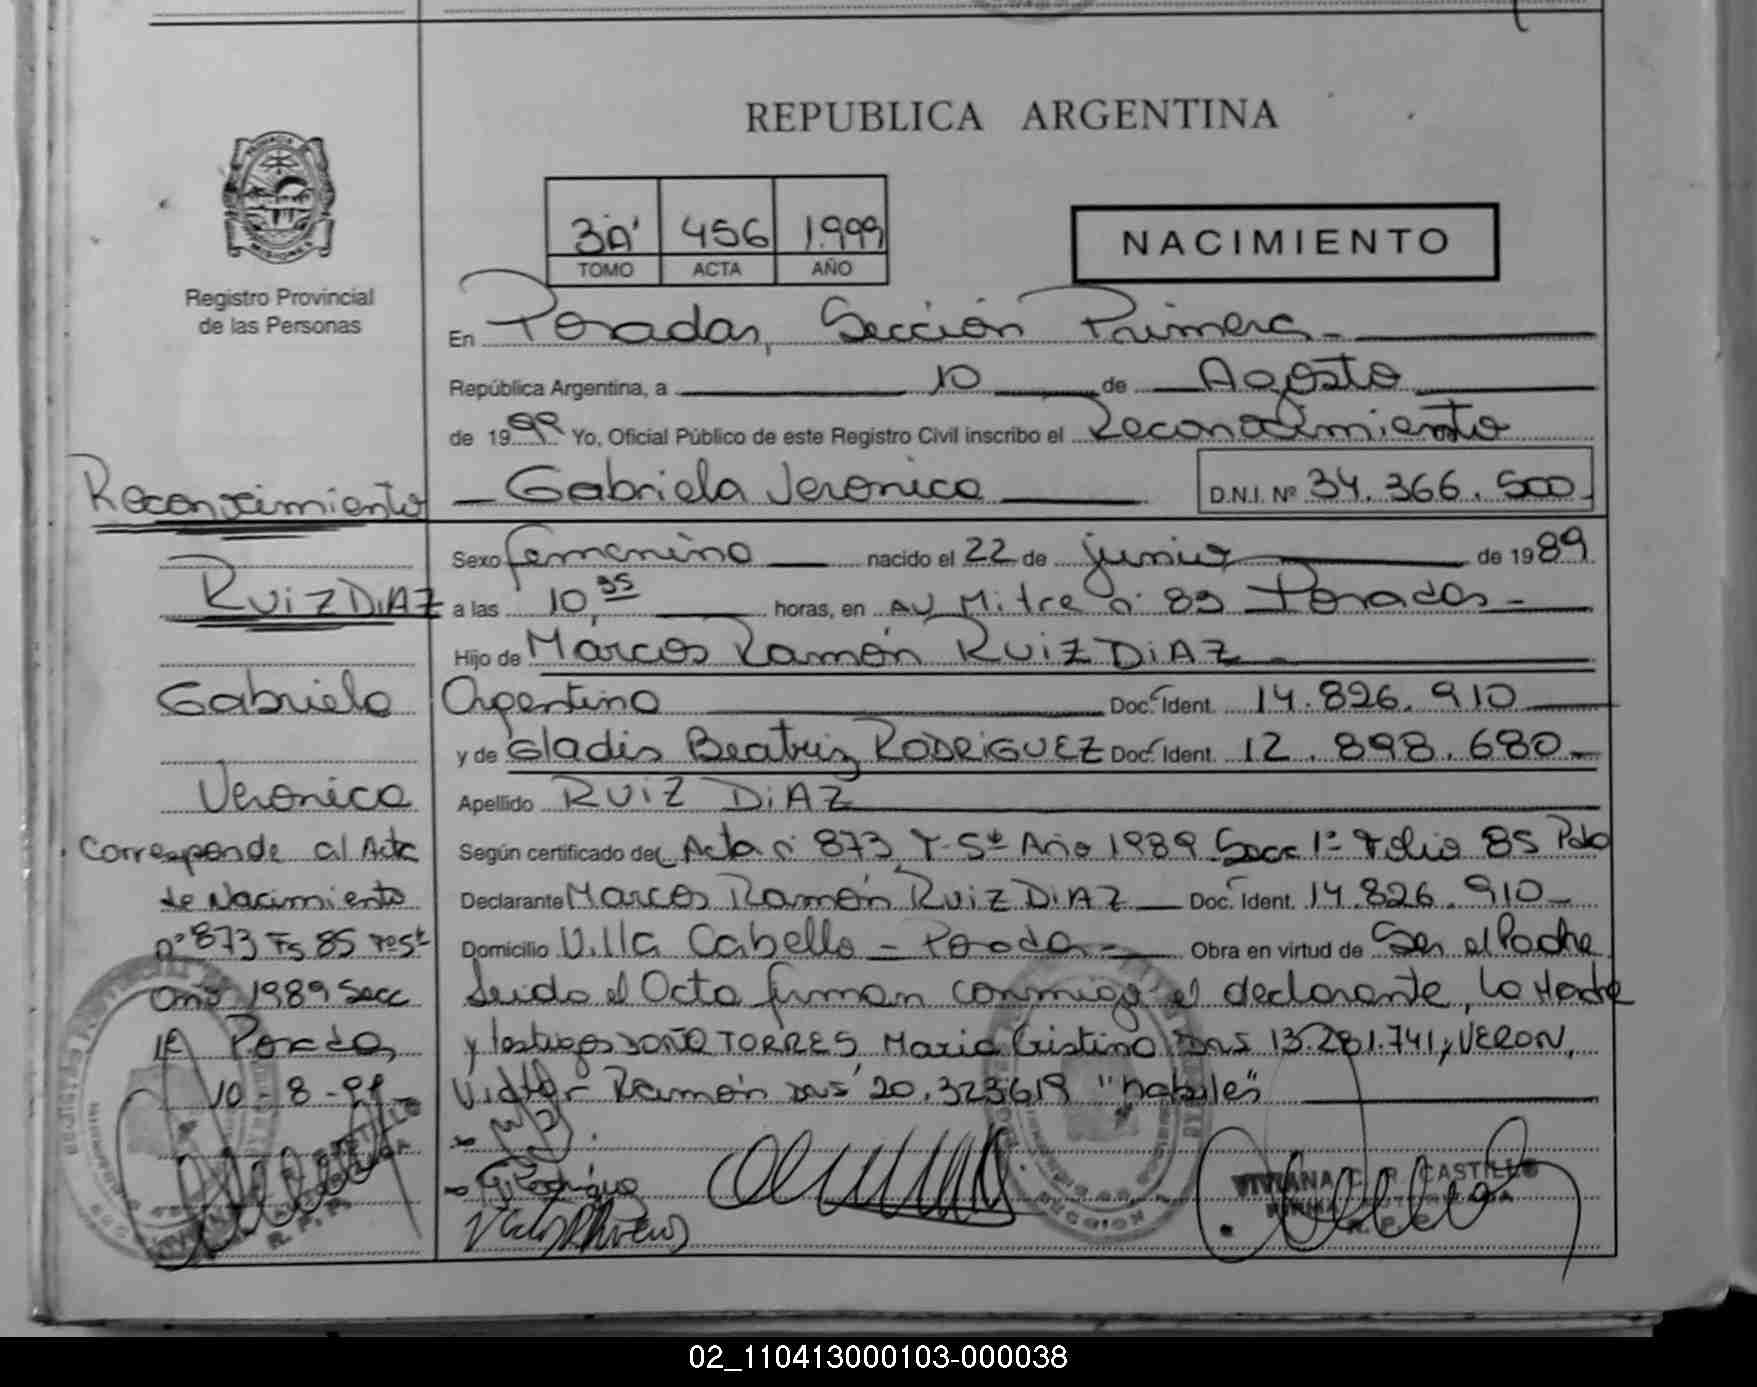 REPUBLICA ARGENTINA
3A' 456 1.999
TOMO ACTA AÑO
NACIMIENTO
Registro Provincial
de las Personas
En Posadas, Sección Primera
República Argentina, a 10 de Agosto
de 1999 Yo, Oficial Público de este Registro Civil inscribo el Reconocimiento
Gabriela Veronica D.N.I. Nº 34.366.500
Sexo femenino nacido el 22 de junio de 1989
a las 10,35 horas, en Av Mitre nº 89 Posadas
Hijo de Marcos Ramón RUIZ DIAZ
Argentino Doc. Ident. 14.826.910
y de Gladis Beatriz RODRIGUEZ Doc. Ident. 12.898.680
Apellido RUIZ DIAZ
Según certificado de Acta nº 873 T-5º Año 1989 Secc 1ª Folio 85 Pdas
Declarante Marcos Ramón RUIZ DIAZ Doc. Ident. 14.826.910
Domicilio Villa Cabello - Posadas Obra en virtud de Ser el Padre
Leido el Acta firman conmigo el declarante, la Madre
y testigos DOÑA TORRES Maria Cristina DNI 13.281.741, VERON,
Victor Ramón DNI 20.323.619 "habiles"
Reconocimiento
RUIZ DIAZ
Gabriela
Veronica
Corresponde al Acta
de Nacimiento
nº 873 Fs 85 Tº 5º
Año 1989 Secc
1ª Posadas
10-8-99
G. Rodríguez
VIVIANA C. R. CASTILLO
FIRMA AUTORIZADA
R. P. P.
02_110413000103-000038